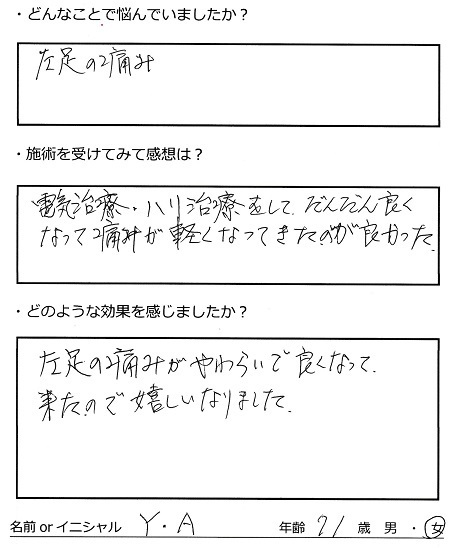 ・どんなことで悩んでいましたか？
左足の痛み
・施術を受けてみて感想は？
電気治療・ハリ治療をして、だんだん良く
なって痛みが軽くなってきたのが良かった。
・どのような効果を感じましたか？
左足の痛みがやわらいで良くなって、
来たので嬉しいなりました。
名前orイニシャル Y・A 年齢 21 歳 男・女